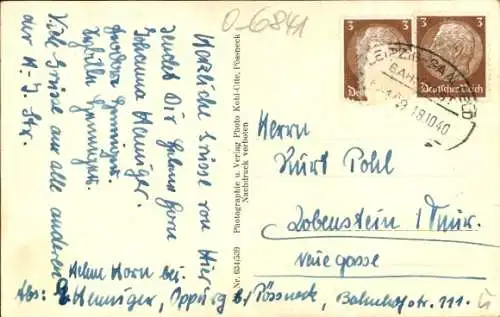 O-6841
3
3
Deutsches Reich
LEIPZIG-SAALFELD
BAHNPOST
18.10.40
Herzliche Grüsse von Hier
sendet Dir Helene Horn
Johanna Henniger.
Henniger.
Henniger.
Viele Grüsse an alle anderen
der A-H Str.
Photographie u. Verlag Photo Kohl-Otte, Pössneck
Nachdruck verboten
Nr. 634/539
Herrn
Kurt Pohl
Lobenstein i/Thür.
Neuegasse
Helene Horn bei
Abs: Henniger, Oppurg b/ Pössneck, Bahnhofstr. 111.